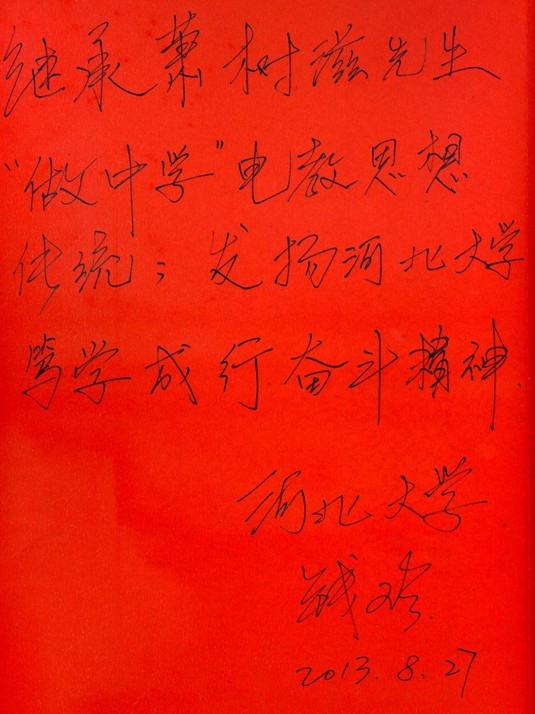 继承萧树滋先生
“做中学”电教思想
传统；发扬河北大学
笃学成行奋斗精神.
河北大学
2013.8.27